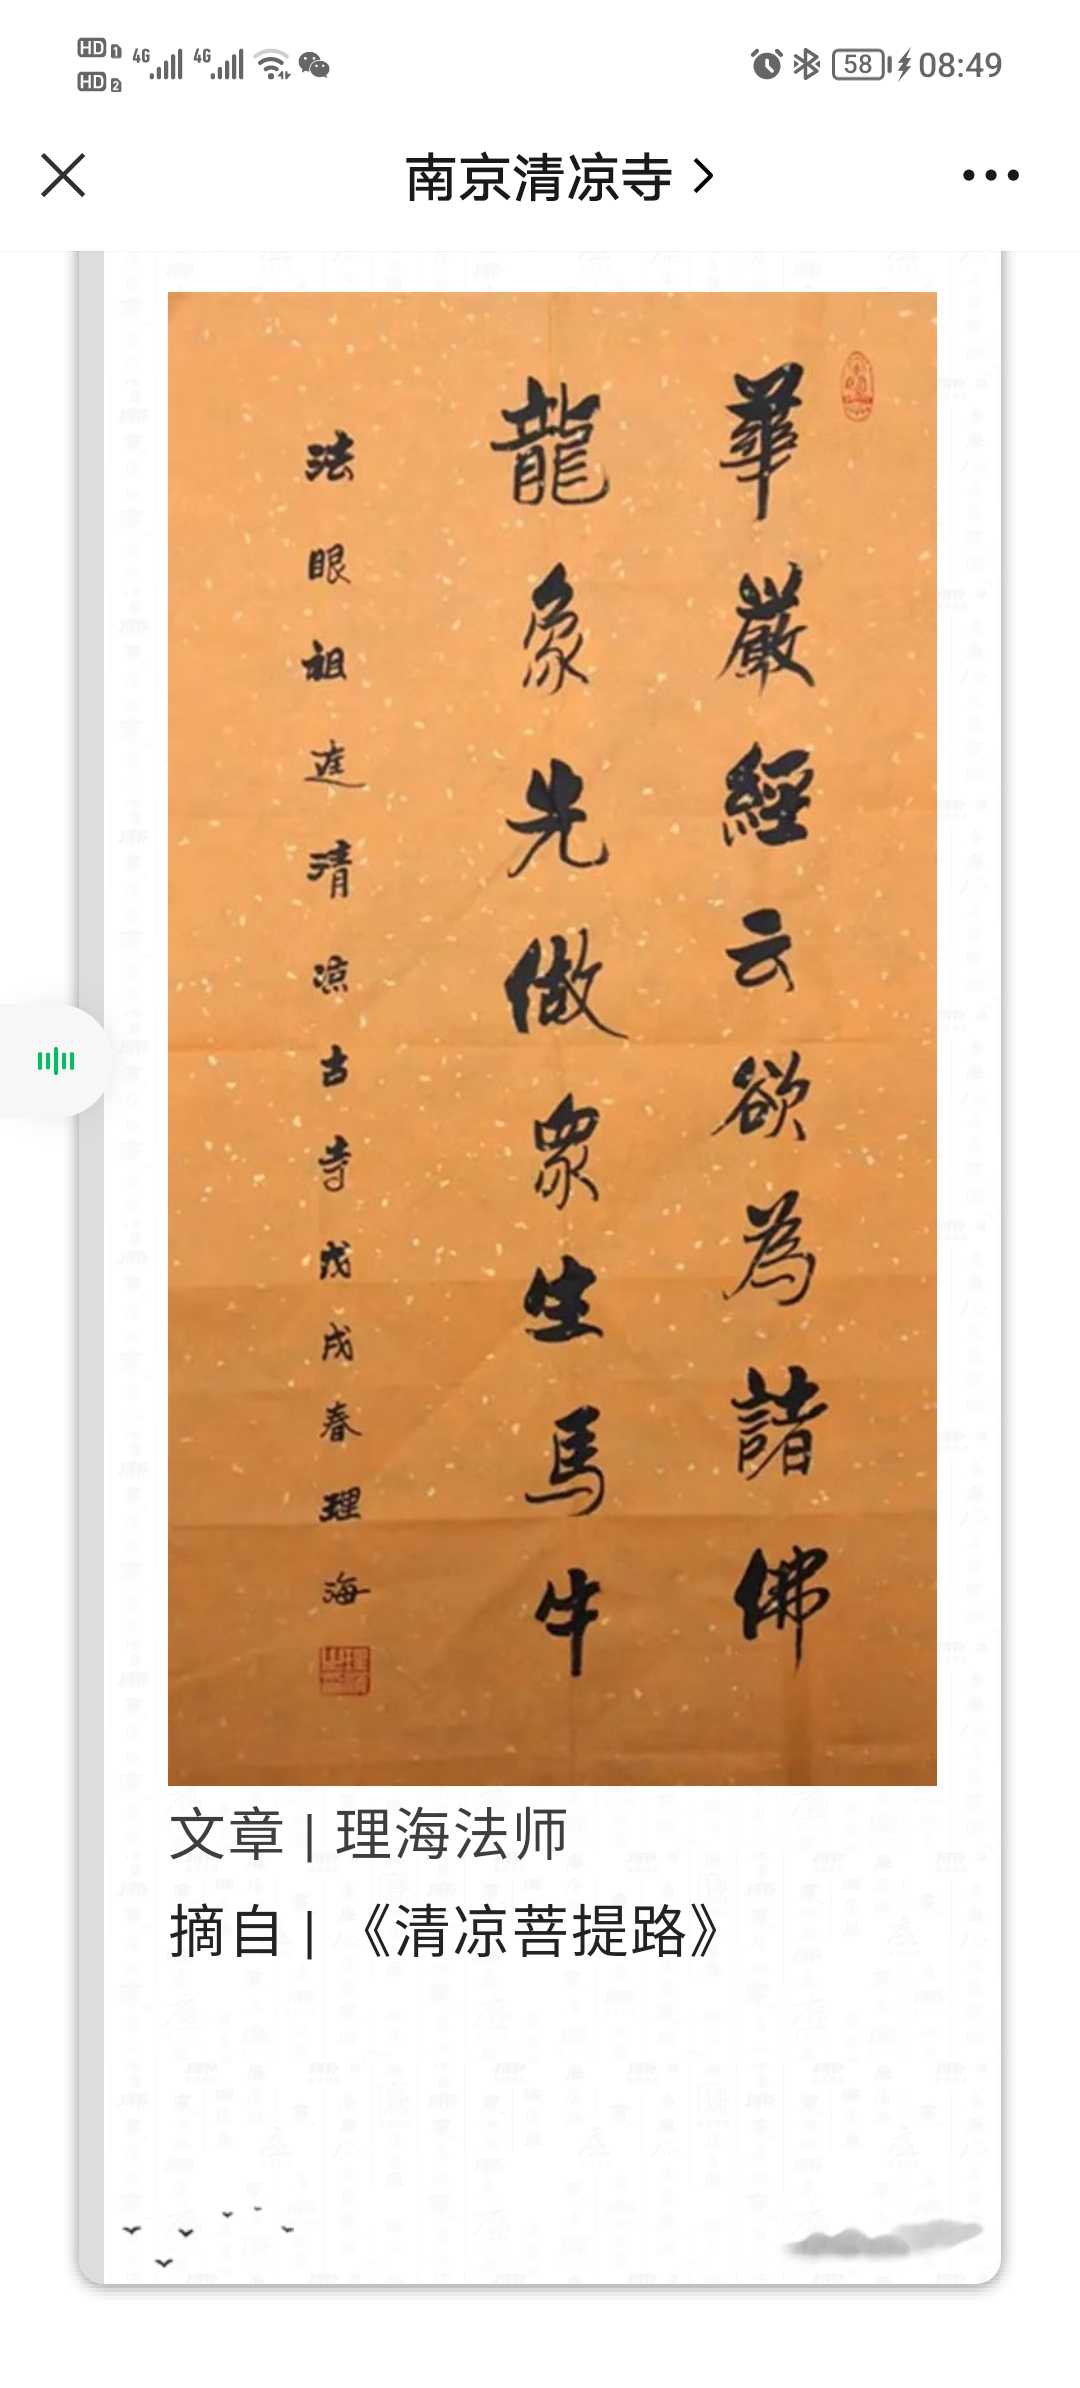 HD 1 4G 4G 58 08:49
HD 2
南京清凉寺
華嚴經云欲為諸佛
龍象先做眾生馬牛
法眼祖庭清涼古寺戊戌春理海
文章 | 理海法师
摘自 | 《清凉菩提路》